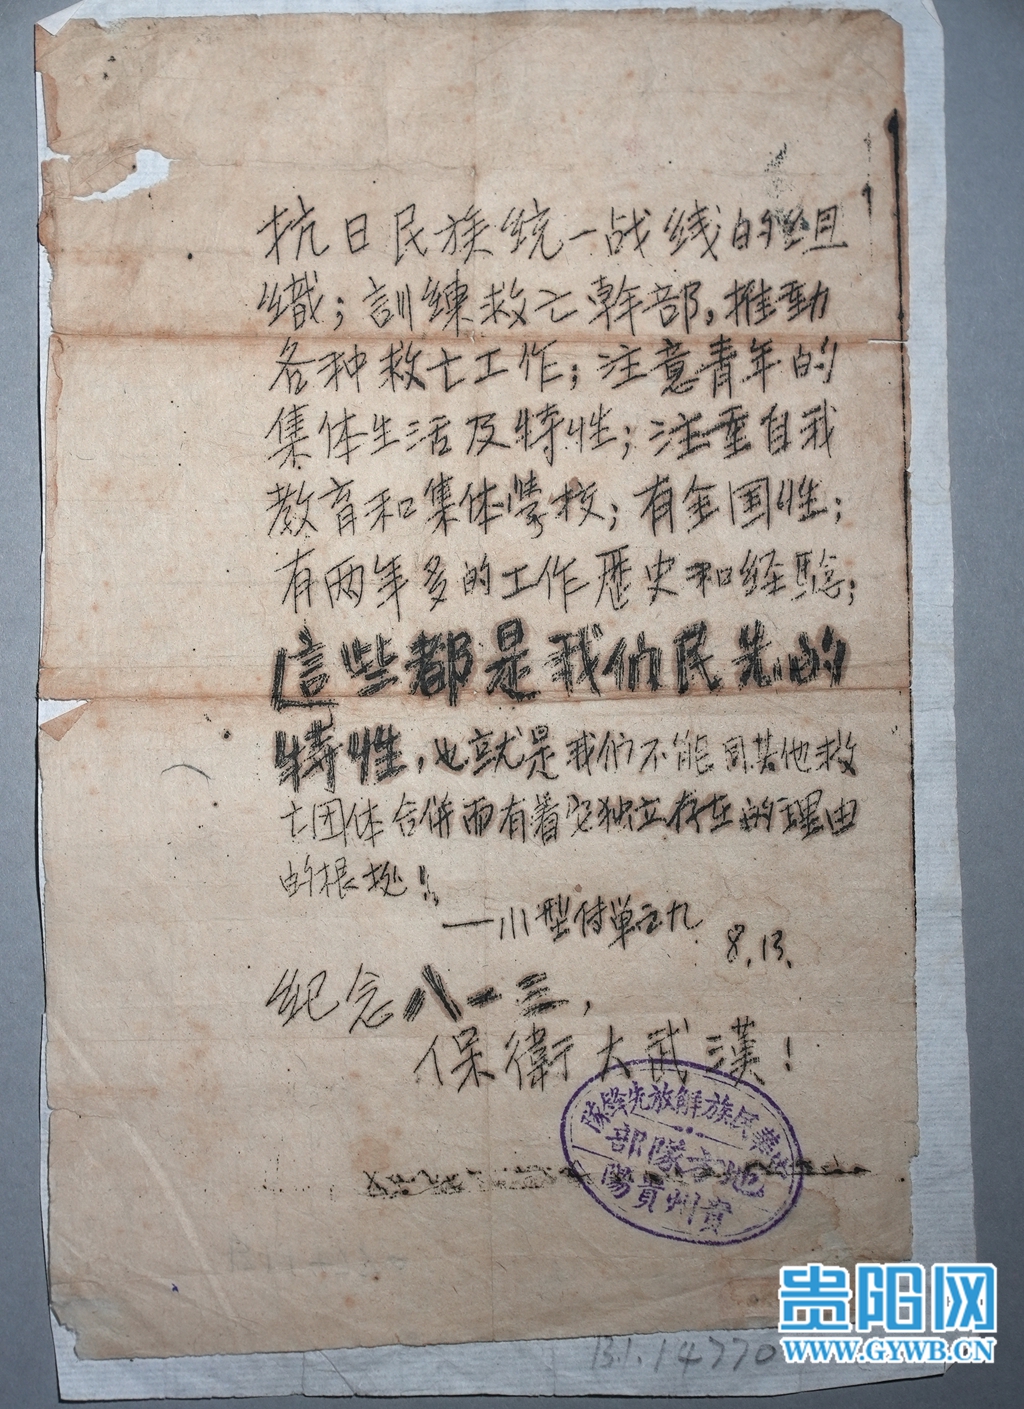 抗日民族统一战线的组
織；訓練救亡幹部，推動
各种救亡工作；注意青年的
集体生活及特性；注重自我
教育和集体学校；有全国性；
有两年多的工作歷史和经驗；
這些都是我们民先的
特性，也就是我们不能同其他救
亡团体合併而有着它独立存在的理由
的根据！
—小型传单之九
8.13.
纪念八一三，
保衛大武漢！
中華民族解放先鋒隊
地方隊部
貴州貴陽
B.1.14770
贵阳网
WWW.GYWB.CN